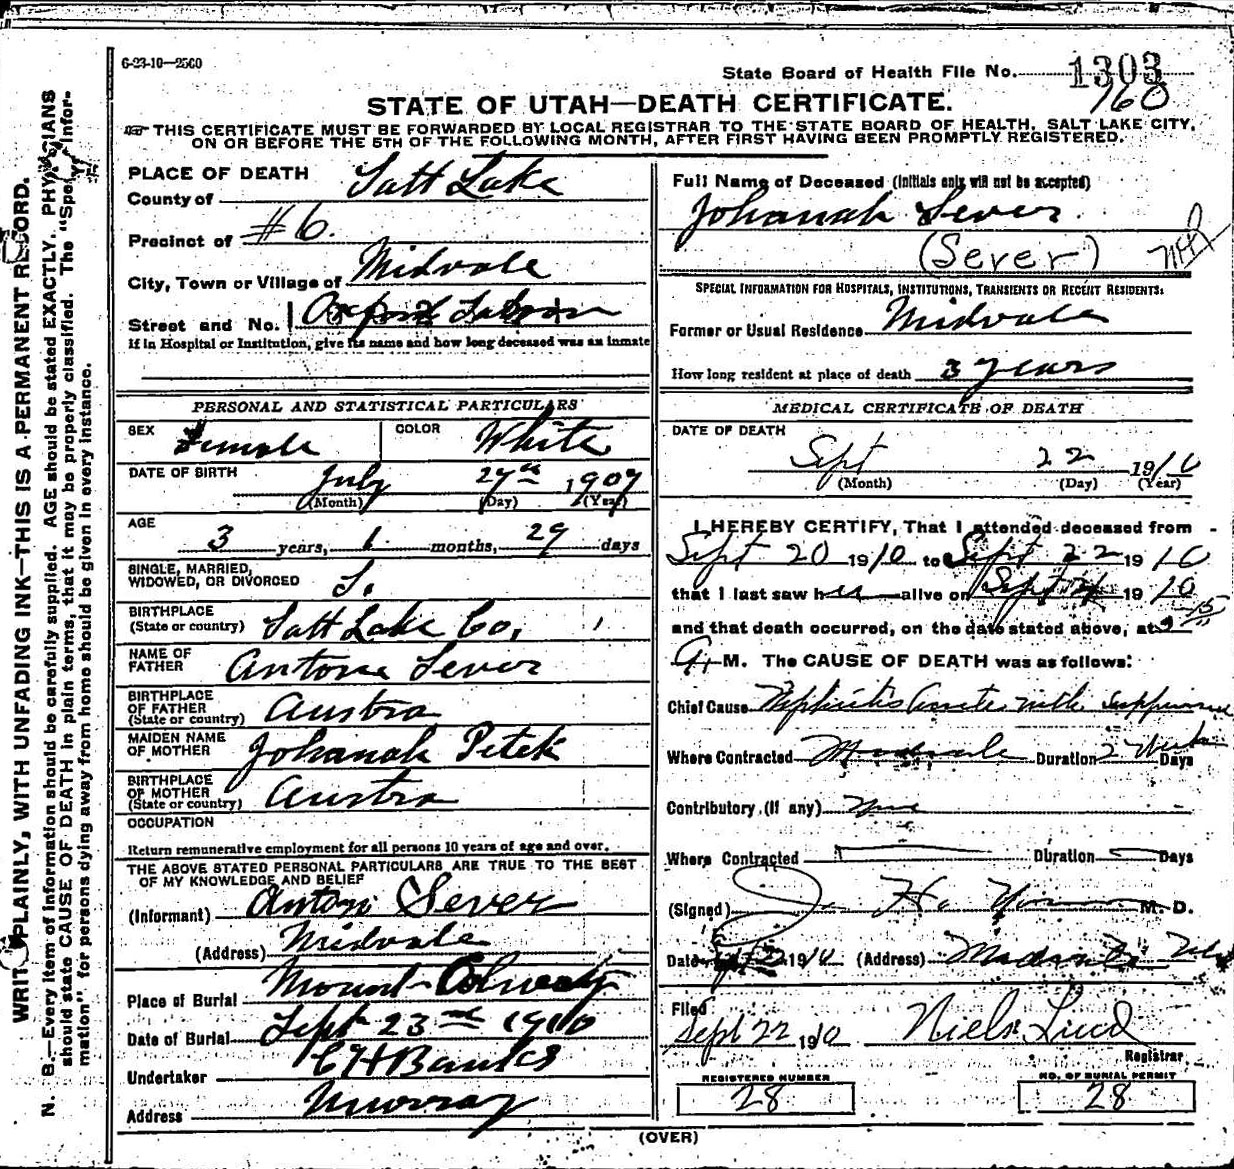 6-23-10—2500
State Board of Health File No. 1303
160
STATE OF UTAH—DEATH CERTIFICATE.
THIS CERTIFICATE MUST BE FORWARDED BY LOCAL REGISTRAR TO THE STATE BOARD OF HEALTH, SALT LAKE CITY,
ON OR BEFORE THE 5TH OF THE FOLLOWING MONTH, AFTER FIRST HAVING BEEN PROMPTLY REGISTERED.
WRITE PLAINLY, WITH UNFADING INK—THIS IS A PERMANENT RECORD.
N. B.—Every item of information should be carefully supplied. AGE should be stated EXACTLY. PHYSICIANS
should state CAUSE OF DEATH in plain terms, that it may be properly classified. The "Special Infor-
mation" for persons dying away from home should be given in every instance.
PLACE OF DEATH
County of Salt Lake
Precinct of #6.
City, Town or Village of Midvale
Street and No.
If in Hospital or Institution, give its name and how long deceased was an inmate
PERSONAL AND STATISTICAL PARTICULARS
SEX Female COLOR White
DATE OF BIRTH July 27th 1907
(Month) (Day) (Year)
AGE
3 years, 1 months, 29 days
SINGLE, MARRIED,
WIDOWED, OR DIVORCED S.
BIRTHPLACE
(State or country) Salt Lake Co.
NAME OF
FATHER Antone Sever
BIRTHPLACE
OF FATHER
(State or country) Austra
MAIDEN NAME
OF MOTHER Johanah Petek
BIRTHPLACE
OF MOTHER
(State or country) Austra
OCCUPATION
Return remunerative employment for all persons 10 years of age and over.
THE ABOVE STATED PERSONAL PARTICULARS ARE TRUE TO THE BEST
OF MY KNOWLEDGE AND BELIEF
(Informant) Anton Sever
(Address) Midvale
Place of Burial Mount
Date of Burial Sept 23rd 1910
Undertaker
Address Murray
Full Name of Deceased (Initials only will not be accepted)
Johanah Sever.
(Sever)
SPECIAL INFORMATION FOR HOSPITALS, INSTITUTIONS, TRANSIENTS OR RECENT RESIDENTS:
Former or Usual Residence Midvale
How long resident at place of death 3 years
MEDICAL CERTIFICATE OF DEATH
DATE OF DEATH
Sept 22 1910
(Month) (Day) (Year)
I HEREBY CERTIFY, That I attended deceased from
Sept 20 1910 to Sept 22 1910
that I last saw her alive on Sept 1910
and that death occurred, on the date stated above, at 3 15
M. The CAUSE OF DEATH was as follows:
Chief Cause Nephritis Acute with
Where Contracted Midvale Duration 2 Weeks Days
Contributory (If any) None
Where Contracted Duration Days
(Signed) H. M. D.
Date 1910 (Address) Midvale
Filed
Sept 22 1910 Niels Lind
Registrar
REGISTERED NUMBER
28
NO. OF BURIAL PERMIT
28
(OVER)